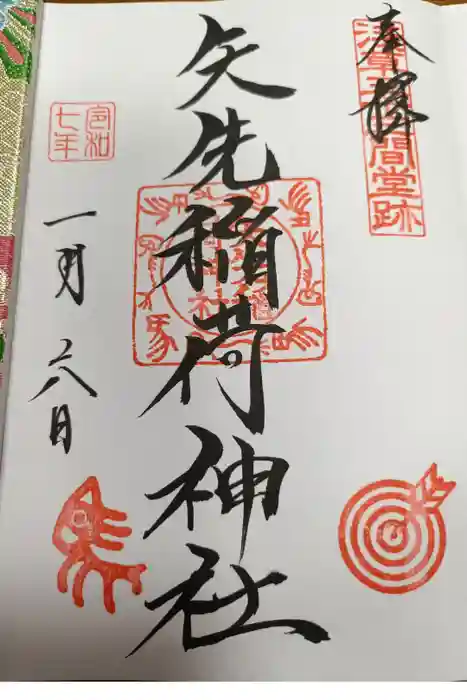 奉拝
浅草三十三間堂跡
矢先稲荷神社
令和
七年
一月六日
馬